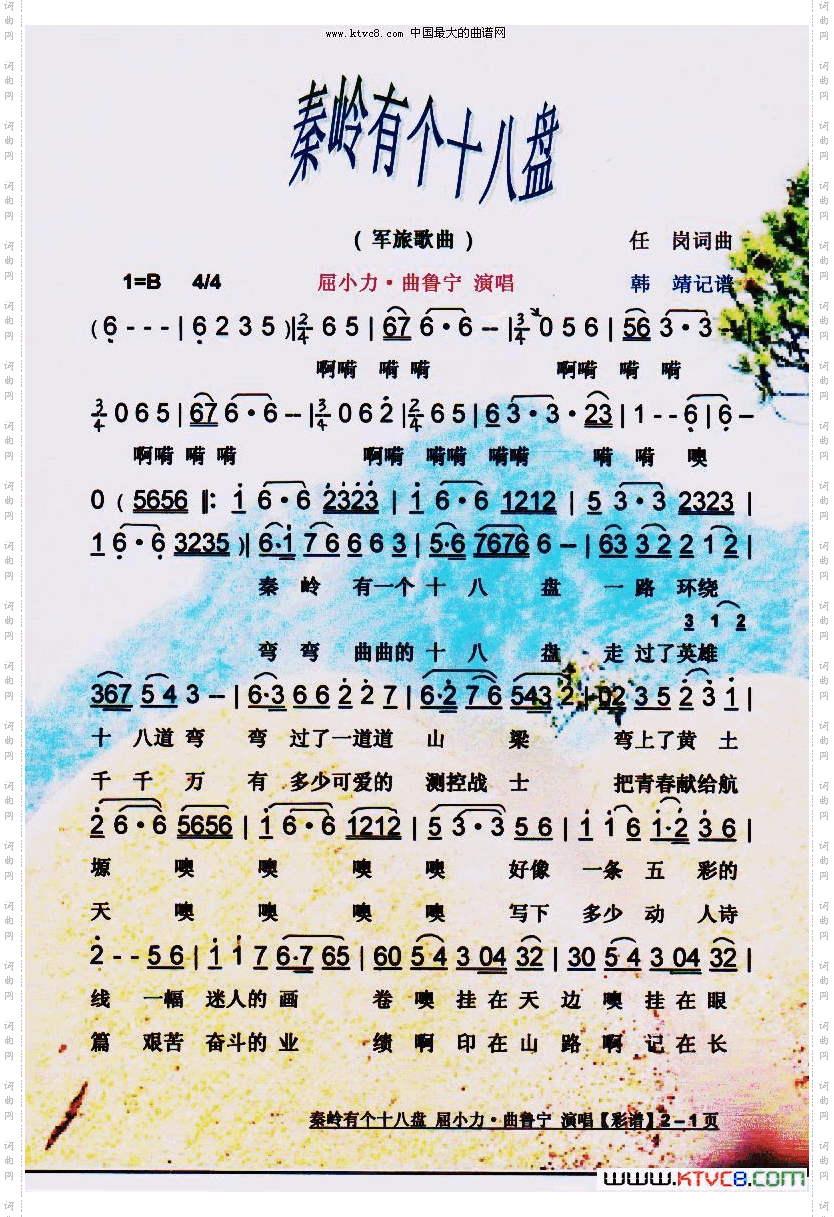 www.ktvc8.com 中国最大的曲谱网
秦岭有个十八盘
（军旅歌曲）
任 岗词曲
1=B 4/4
屈小力·曲鲁宁 演唱
韩 靖记谱
(6 - - - | 6 2 3 5 )| 2/4 6 5 | 67 6·6 -- | 3/4 0 5 6 | 56 3·3 -- |
啊嗬 嗬 嗬 啊嗬 嗬 嗬
3/4 0 6 5 | 67 6·6 -- | 3/4 0 6 2 | 2/4 6 5 | 6 3·3·23 | 1 - - 6 | 6 -
啊嗬 嗬 嗬 啊嗬 嗬嗬 嗬嗬 嗬 嗬 噢
0 ( 5656 |: 1 6·6 2323 | 1 6·6 1212 | 5 3·3 2323 |
1 6·6 3235 )| 6·1 7 6 6 6 3 | 5·6 7676 6 - | 63 3 2 2 1 2 |
秦 岭 有一个 十 八 盘 一 路 环绕
3 1 2
弯 弯 曲曲的 十 八 盘 走 过了英雄
367 5 4 3 - | 6·3 6 6 2 2 7 | 6·2 7 6 543 2 | 02 3 5 2 3 1 |
十 八道 弯 弯 过了一道道 山 梁 弯上了黄 土
千 千 万 有 多少可爱的 测控战 士 把青春献给航
2 6·6 5656 | 1 6·6 1212 | 5 3·3 5 6 | 1 1 6 1·2 3 6 |
塬 噢 噢 噢 噢 好像 一条 五 彩的
天 噢 噢 噢 噢 写下 多少 动 人诗
2 - - 5 6 | 1 1 7 6·7 65 | 60 5 4 3 04 32 | 30 5 4 3 04 32 |
线 一幅 迷人的 画 卷 噢 挂 在 天 边 噢 挂 在 眼
篇 艰苦 奋斗的 业 绩 啊 印 在 山 路 啊 记 在 长
秦岭有个十八盘 屈小力·曲鲁宁 演唱【彩谱】2－1页
www.KTVC8.com